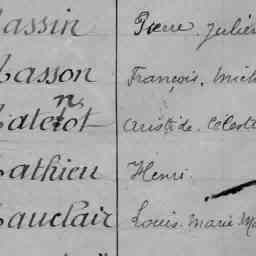 assin Pierre. Julien
asson François. Mich
ate ot Aristide. Célest
athieu Henri.
auclair Louis. Marie. Ma